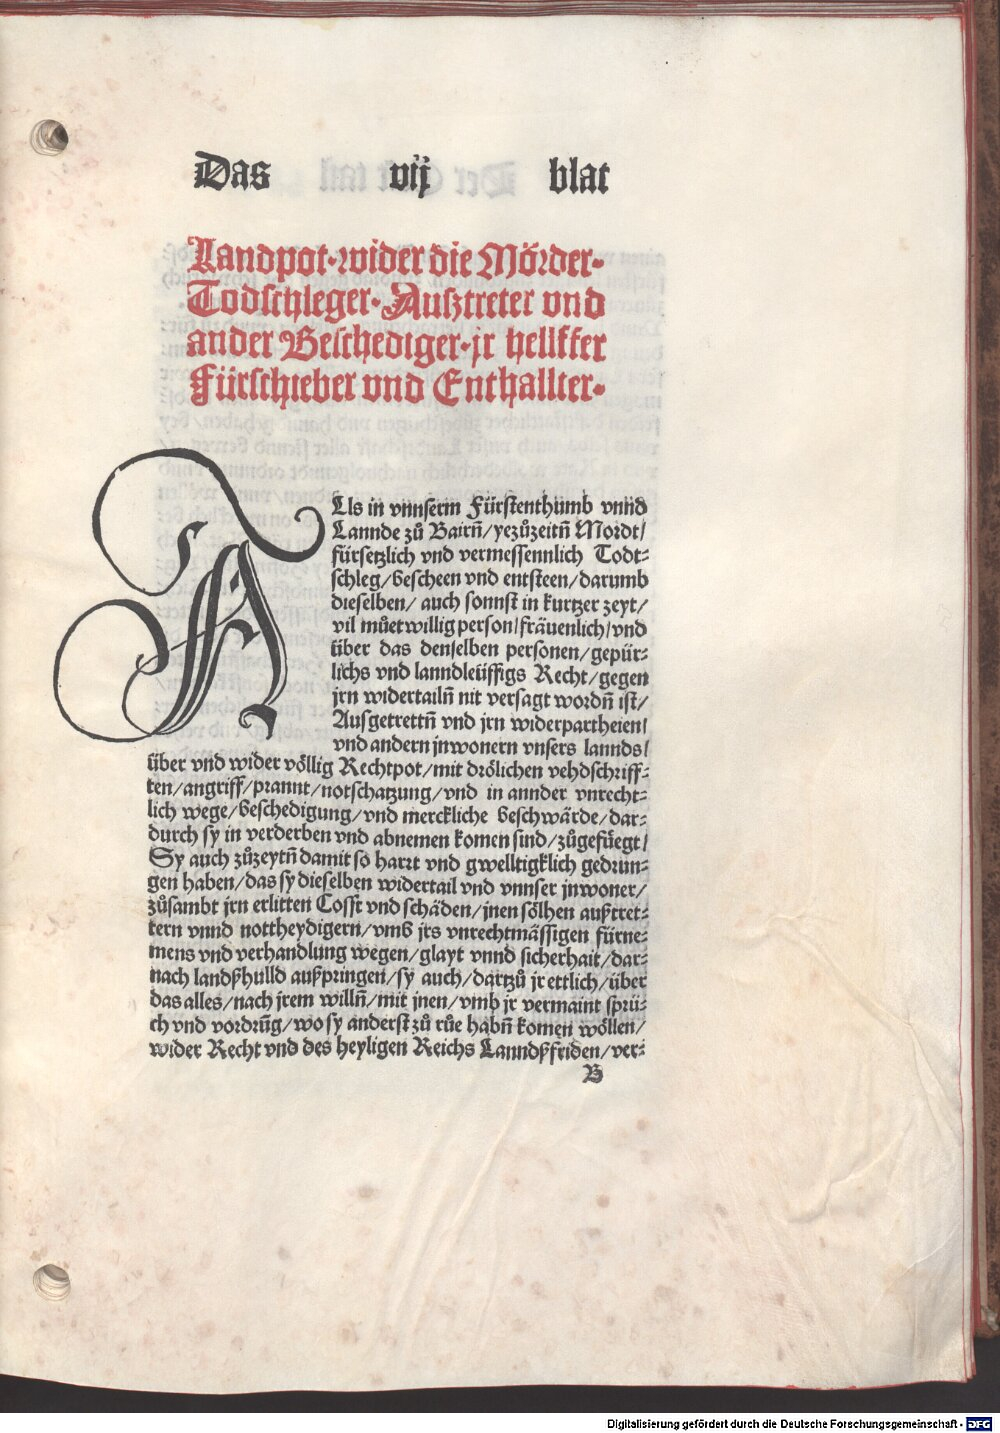 Das vij blat
Landpot·wider die Mörder·
Todschleger·Auſztreter vnd
ander Beſchediger·jr hellffer
Fürſchieber vnd Enthallter·
ALs in vnnſerm Fürſtenthumb vnnd
Lannde zů Bairñ/yezůzeitñ Mordt/
fürſetzlich vnd vermeſſennlich Todt⸗
ſchleg/beſcheen vnd entſteen/darumb
dieſelben/auch ſonnſt in kurtzer zeyt/
vil můetwillig perſon/fräuenlich/vnd
über das denſelben perſonen/gepür⸗
lichs vnd lanndleüffigs Recht/gegen
jrn widertailñ nit verſagt wordñ iſt/
Auſgetrettñ vnd jrn widerpartheien/
vnd andern jnwonern vnſers lannds/
über vnd wider völlig Rechtpot/mit drölichen vehdſchriff⸗
ten/angriff/prannt/notſchatzung/vnd in annder vnrecht⸗
lich wege/beſchedigung/vnd merckliche beſchwärde/dar⸗
durch ſy in verderben vnd abnemen komen ſind/zůgefüegt/
Sy auch zůzeytñ damit ſo harrt vnd gwelltigklich gedrun⸗
gen haben/das ſy dieſelben widertail vnd vnnſer jnwoner/
zůſambt jrn erlitten Coſſt vnd ſchäden/jnen ſölhen außtret⸗
tern vnnd nottheydigern/vmb jrs vnrechtmäſſigen fürne⸗
mens vnd verhandlung wegen/glayt vnnd ſicherhait/dar⸗
nach landßhulld außpringen/ſy auch/dartzů jr ettlich/über
das alles/nach jrem willñ/mit jnen/vmb jr vermaint ſprü⸗
ch vnd vordrũg/wo ſy anderſt zů růe habñ komen wöllen/
wider Recht vnd des heyligen Reichs Lanndßfriden/ver⸗
B
Digitalisierung gefördert durch die Deutsche Forschungsgemeinschaft - DFG